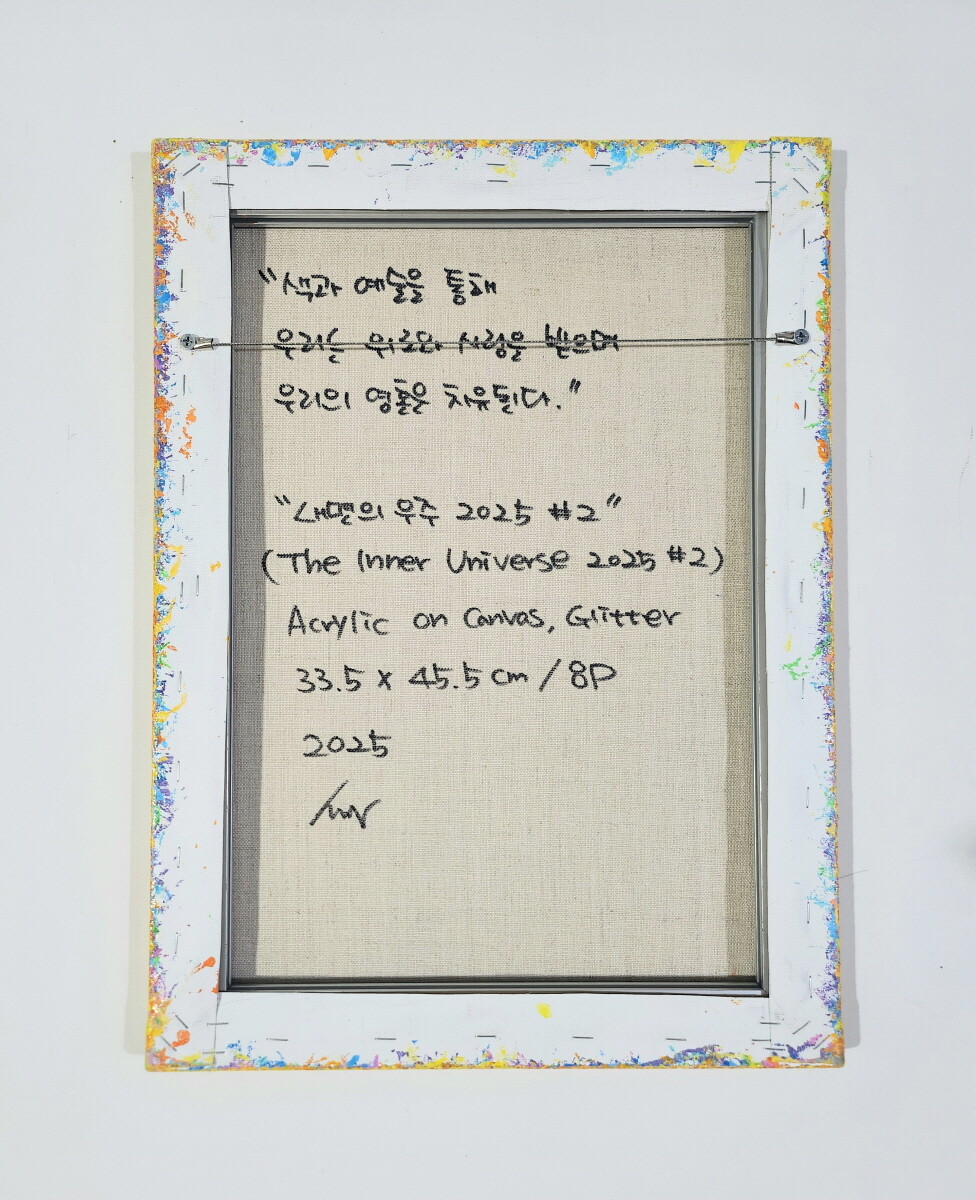 "색과 예술을 통해
우리는 위로와 사랑을 받으며
우리의 영혼은 치유된다."
"내면의 우주 2025 #2"
(The Inner Universe 2025 #2)
Acrylic on Canvas, Glitter
33.5 x 45.5 cm / 8P
2025